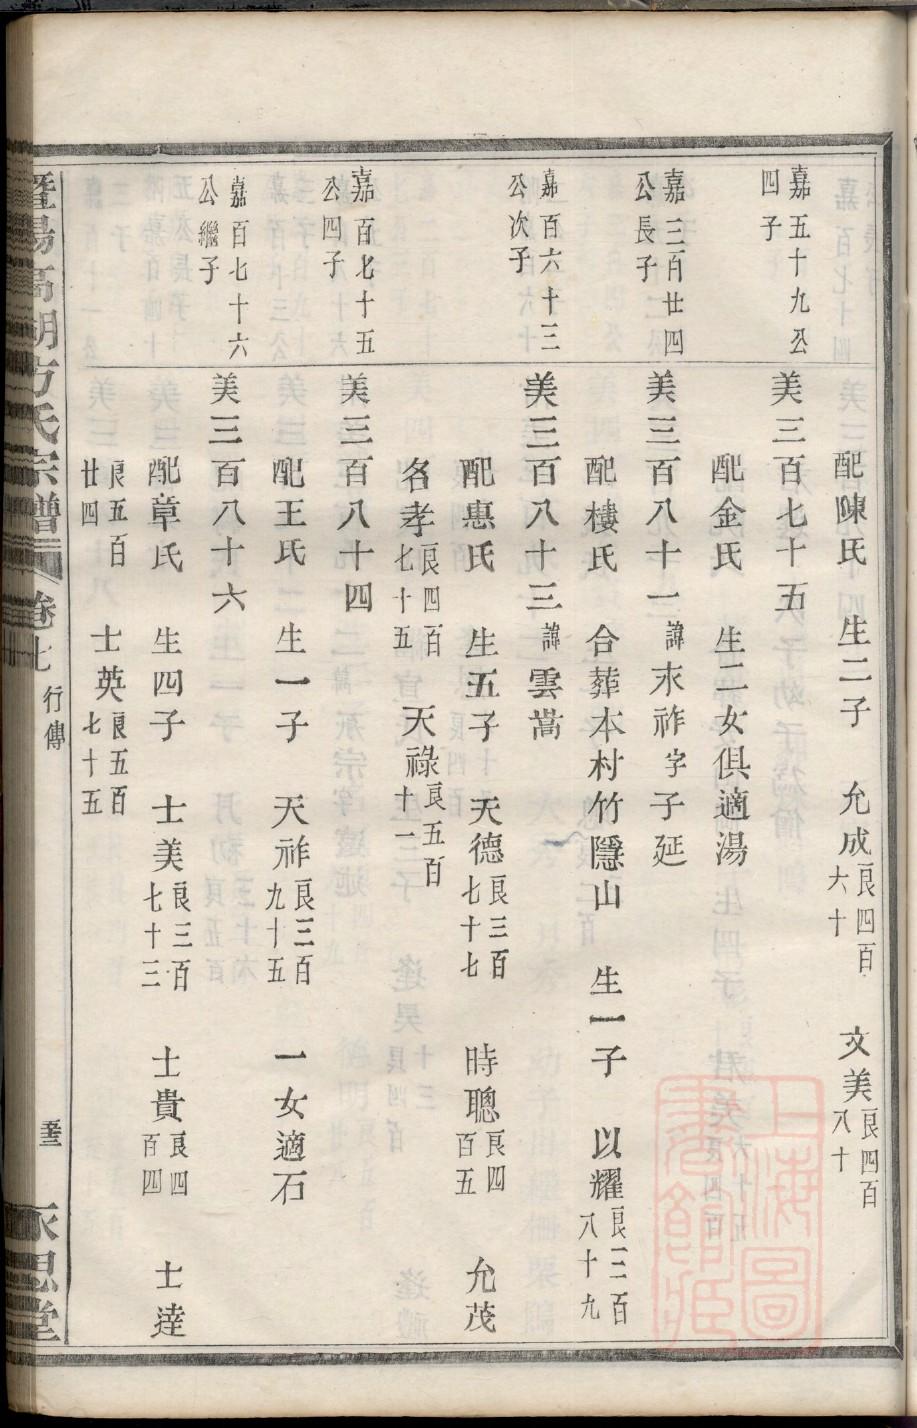 配陳氏 生二子 允成良四百六十 文美良四百八十
嘉五十九公四子
美三百七十五
配金氏 生二女俱適湯
嘉三百廿四公長子
美三百八十一諱永祚字子延
配樓氏 合葬本村竹隱山 生一子 以耀良三百八十九
嘉百六十三公次子
美三百八十三諱雲嵩
配惠氏 生五子 天德良三百七十七 時聰良四百五 允茂
名孝良四百七十五 天祿良五百十一
嘉百七十五公四子
美三百八十四
配王氏 生一子 天祚良三百九十五 一女適石
嘉百七十六公繼子
美三百八十六
配章氏 生四子 士美良三百七十三 士貴良四百四 士達
良五百廿四 士英良五百七十五
暨陽高湖方氏宗譜 卷七 行傳 永思堂
上海圖書館藏